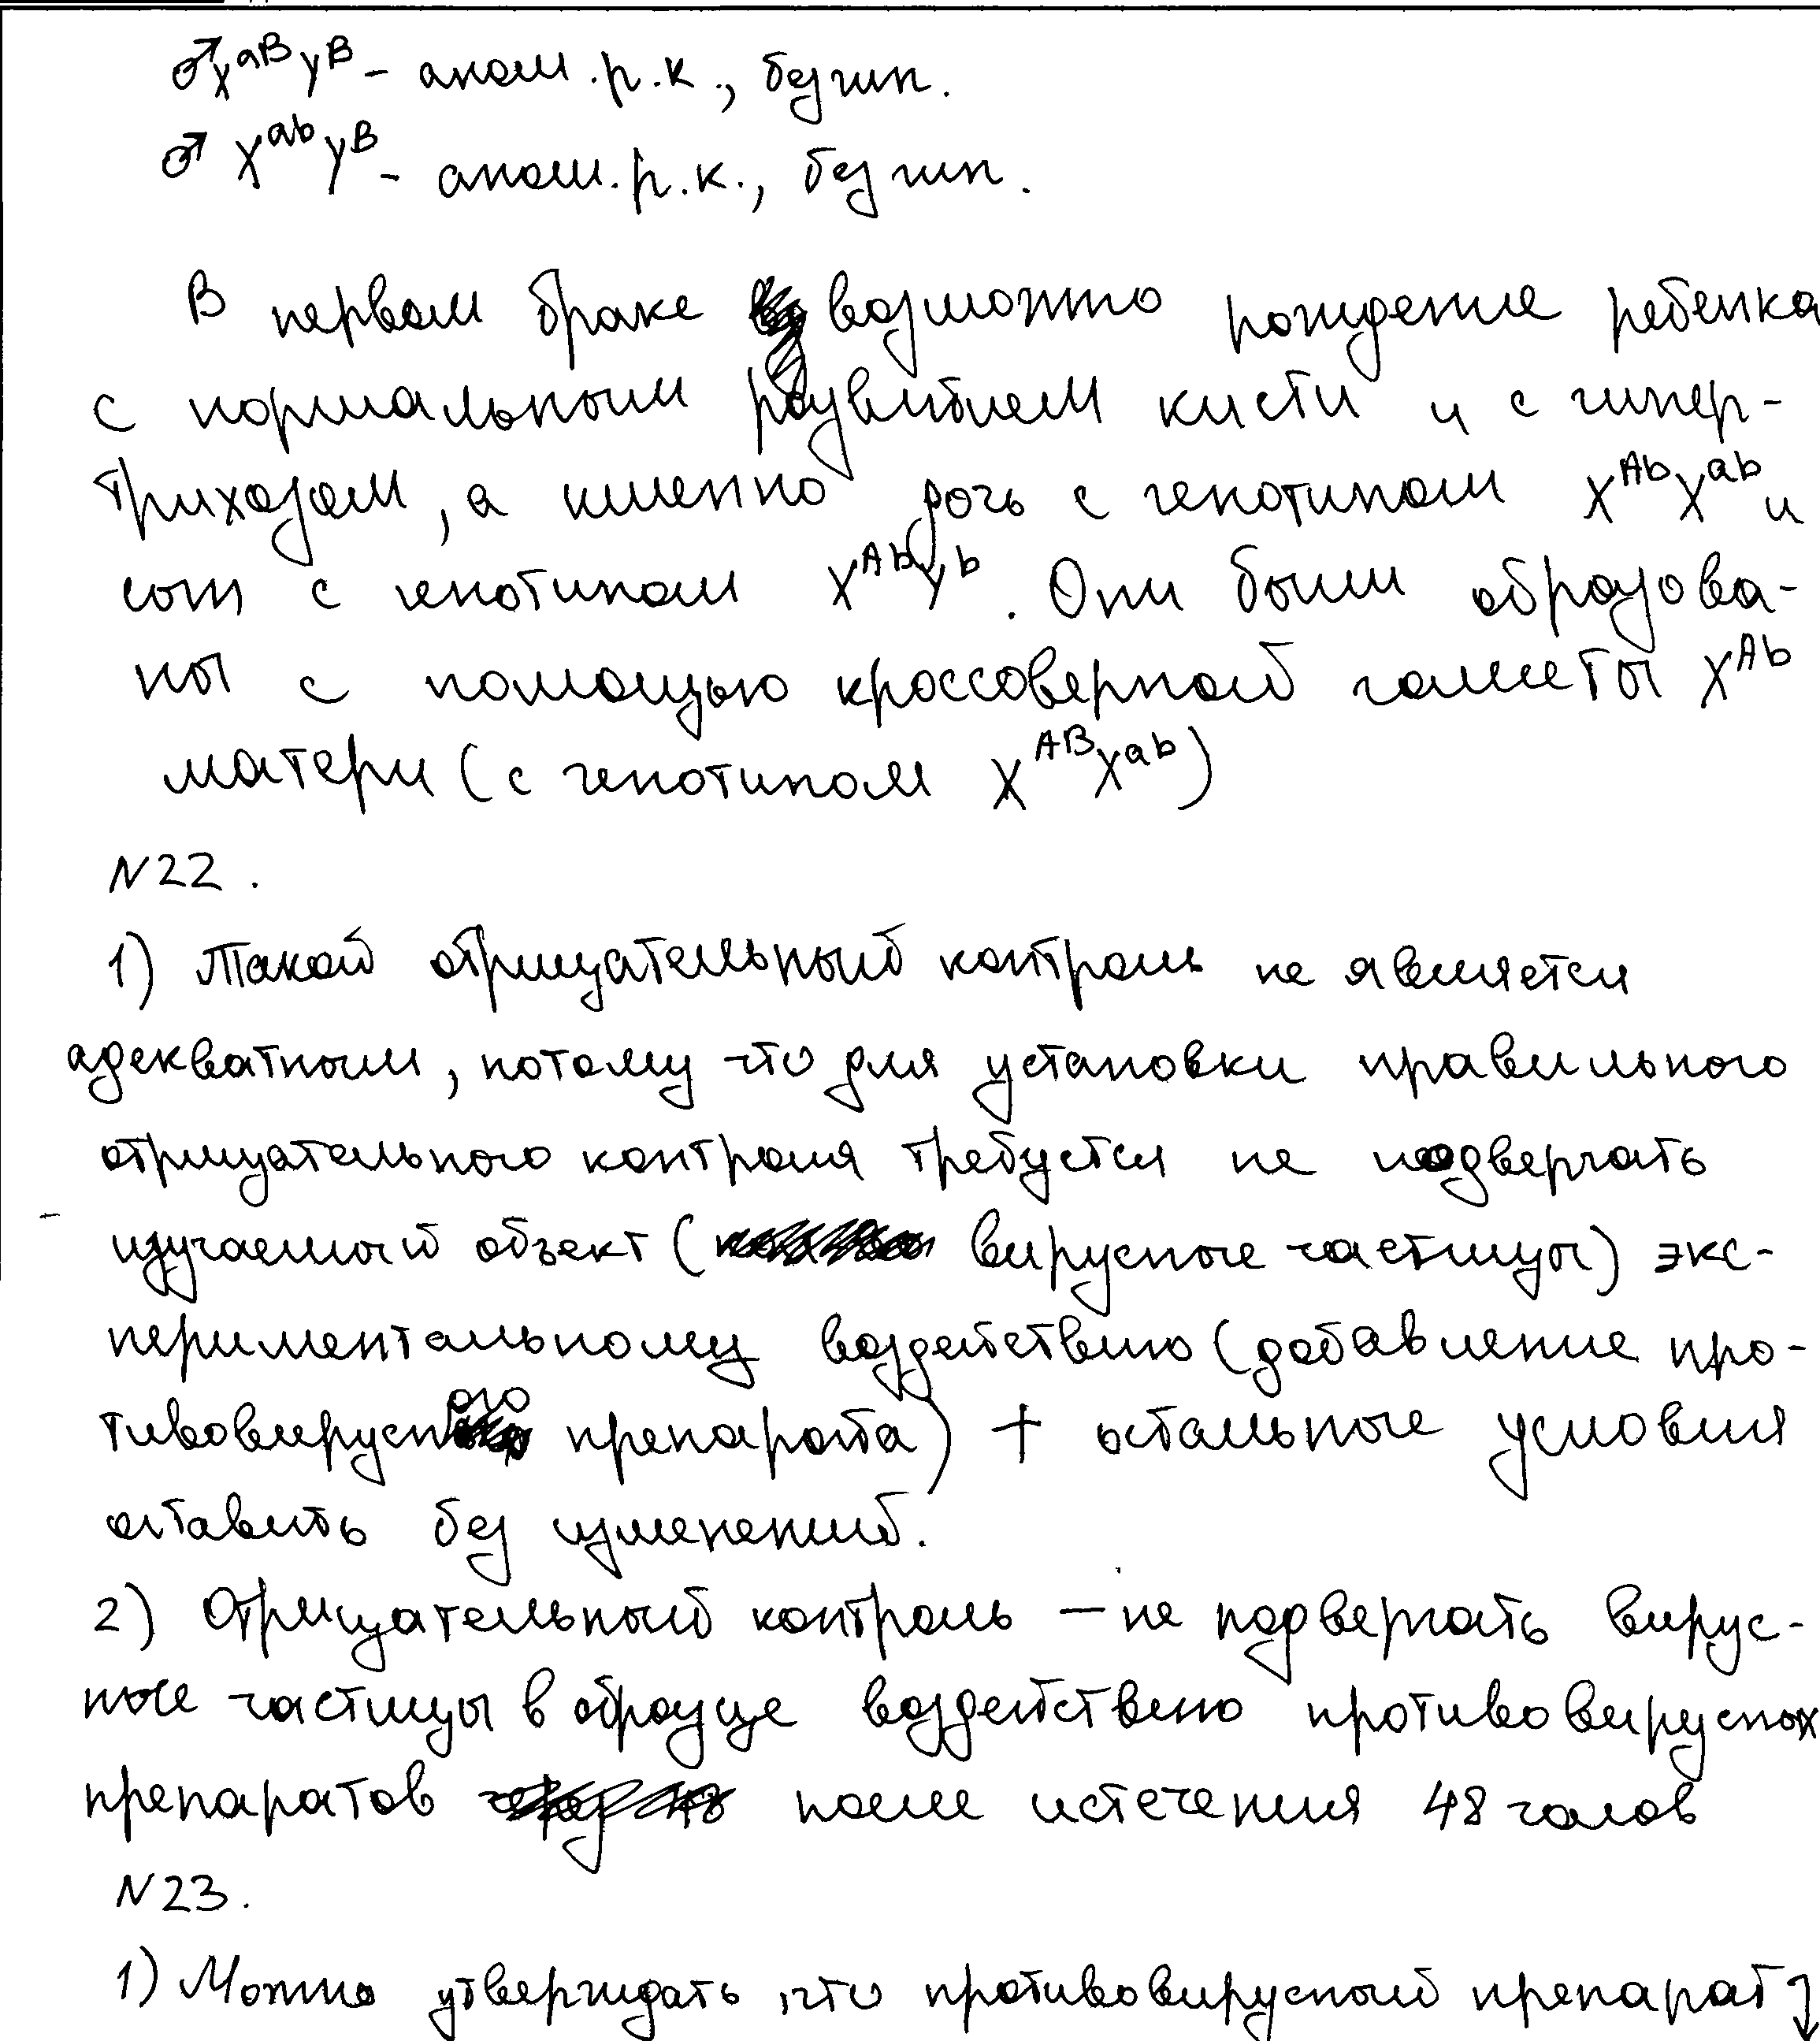 ♂X^aB Y^B - аном.р.к., без гип.
♂ X^ab Y^B - аном.р.к., без гип.
В первом браке возможно рождение ребенка
с нормальным развитием кисти и с гипер-
трихозом, а именно дочь с генотипом X^Ab X^ab и
сын с генотипом X^Ab Y^b. Они были образова-
ны с помощью кроссоверной гаметы X^Ab
матери (с генотипом X^AB X^ab)
N22.
1) Такой отрицательный контроль не является
адекватным, потому что для установки правильного
отрицательного контроля требуется не подвергать
изучаемый объект (вирусные частицы) экс-
периментальному воздействию (добавление про-
тивовирусного препарата) + остальные условия
оставить без изменений.
2) Отрицательный контроль — не подвергать вирус-
ные частицы в образце воздействию противовирусных
препаратов после истечения 48 часов
N23.
1) Можно утверждать, что противовирусный препарат